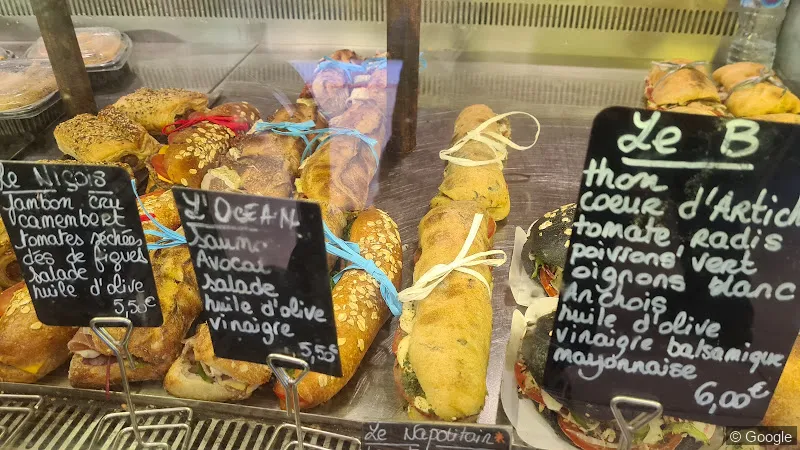 Le Niçois
Jambon cru
camembert
tomates séchées
dés de figues
salade
huile d'olive
5,50€
L'OCEAN
saumon
Avocat
salade
huile d'olive
vinaigre
5,50€
Le B
thon
coeur d'Artich
tomate radis
poivrons vert
oignons blanc
Anchois
huile d'olive
vinaigre balsamique
mayonnaise
6,00€
Le Napolitain*
© Google